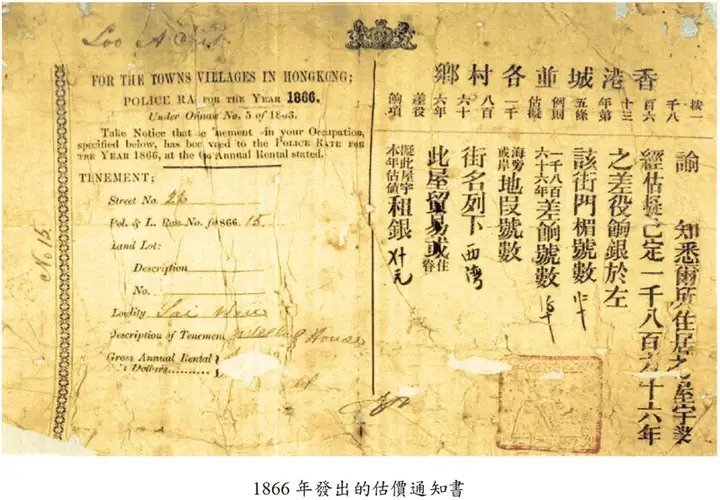 Loo A
FOR THE TOWNS VILLAGES IN HONGKONG;
POLICE RA FOR THE YEAR 1866.
Under No. 5 of 1863.
Take Notice that enement in your Occupation,
specified below, has bee to the POLICE RATE FOR
THE YEAR 1866, at the Annual Rental stated.
TENEMENT;
Street No.
Pol. & L. Rate No. for 1866. 15.
Land Lot:
Description
No.
Locality Sai Wan
Description of Tenement Dwelling House
Gross Annual Rental
Dollars
No 15.
香港城並各村鄉
按一千八百六十三年第五條例則估擬一千八百六十六年差役餉項
諭 知悉爾所住居之屋宇業
經估擬已定一千八百六十六年
之差役餉銀於左
該街門楣號數
一千八百六十六年差餉號數
海旁或岸地段號數
街名列下 西灣
此屋貿易或住眷
擬此屋宇本年估值租銀 元
1866 年發出的估價通知書